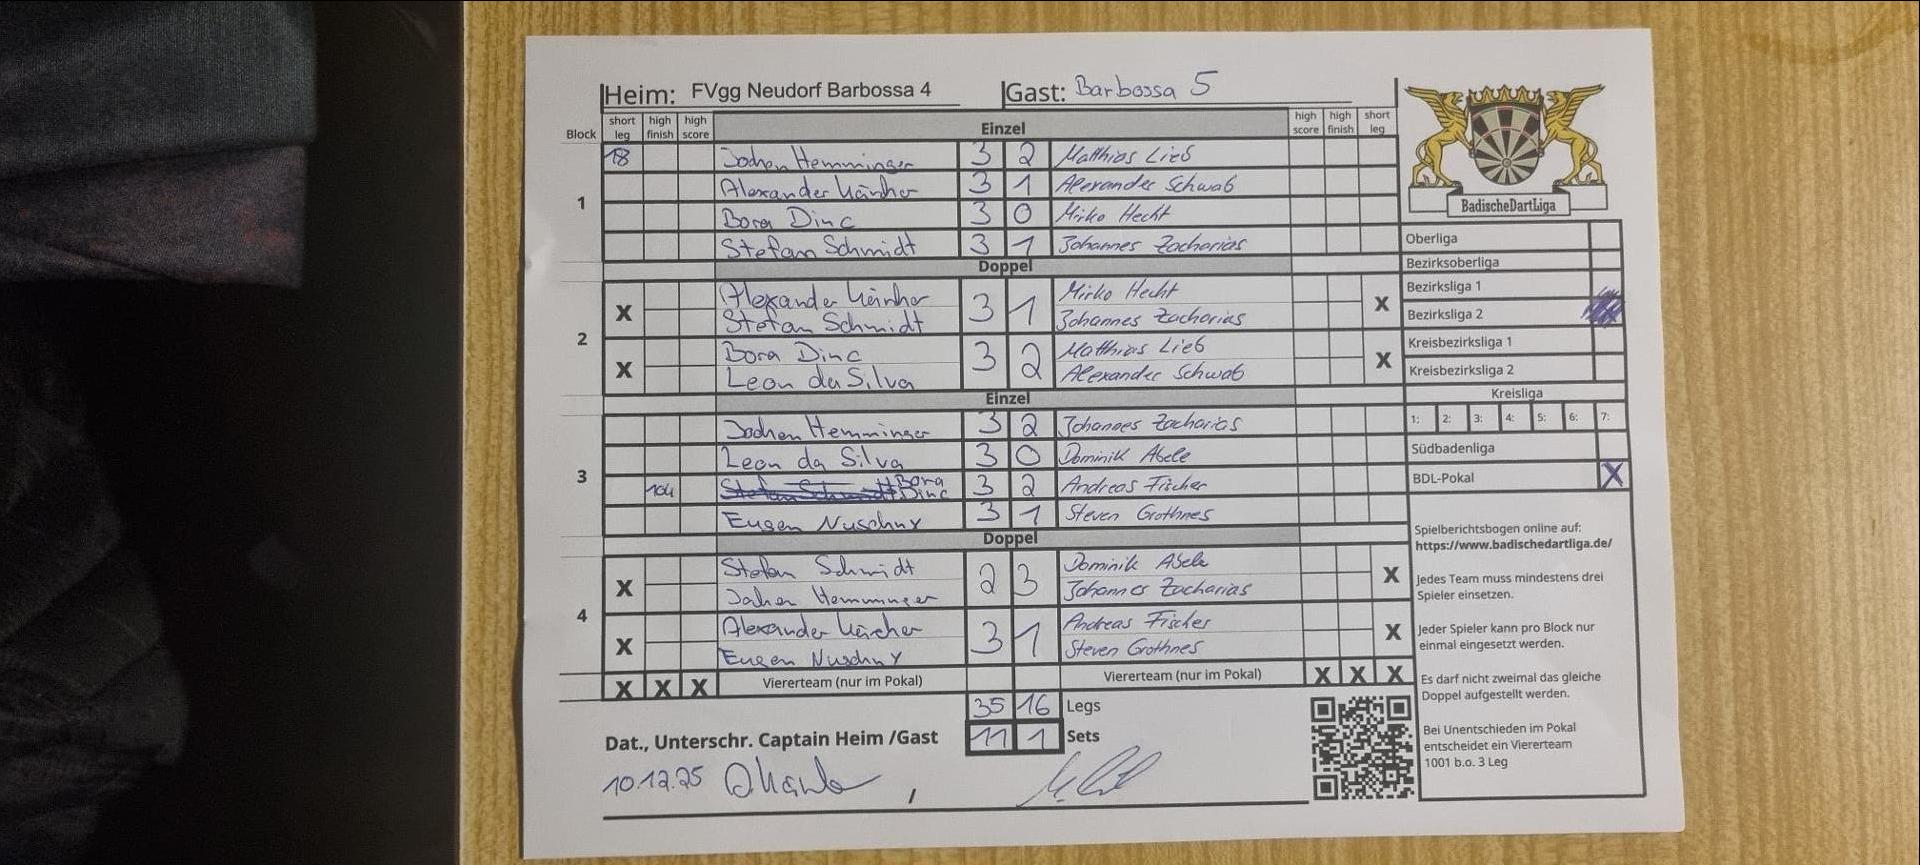 Heim: FVgg Neudorf Barbossa 4 Gast: Barbossa 5
Block short leg high finish high score Einzel high score high finish short leg
1
18 Jochen Hemminger 3 2 Matthias Lieb
Alexander Kärcher 3 1 Alexander Schwab
Bora Dinc 3 0 Mirko Hecht
Stefan Schmidt 3 1 Johannes Zacharias
Doppel
2
X Alexander Kärcher 3 1 Mirko Hecht X
Stefan Schmidt Johannes Zacharias
X Bora Dinc 3 2 Matthias Lieb X
Leon da Silva Alexander Schwab
Einzel
3
Jochen Hemminger 3 2 Johannes Zacharias
Leon da Silva 3 0 Dominik Abele
104 Stefan Schmidt Bora Dinc 3 2 Andreas Fischer
Eugen Nuschny 3 1 Steven Grothnes
Doppel
4
X Stefan Schmidt 2 3 Dominik Abele X
Jochen Hemminger Johannes Zacharias
X Alexander Kärcher 3 1 Andreas Fischer X
Eugen Nuschny Steven Grothnes
X X X Viererteam (nur im Pokal) Viererteam (nur im Pokal) X X X
35 16 Legs
Dat., Unterschr. Captain Heim /Gast 11 1 Sets
10.12.25
BadischeDartLiga
Oberliga
Bezirksoberliga
Bezirksliga 1
Bezirksliga 2
Kreisbezirksliga 1
Kreisbezirksliga 2
Kreisliga
1: 2: 3: 4: 5: 6: 7:
Südbadenliga
BDL-Pokal X
Spielberichtsbogen online auf:
https://www.badischedartliga.de/
Jedes Team muss mindestens drei
Spieler einsetzen.
Jeder Spieler kann pro Block nur
einmal eingesetzt werden.
Es darf nicht zweimal das gleiche
Doppel aufgestellt werden.
Bei Unentschieden im Pokal
entscheidet ein Viererteam
1001 b.o. 3 Leg